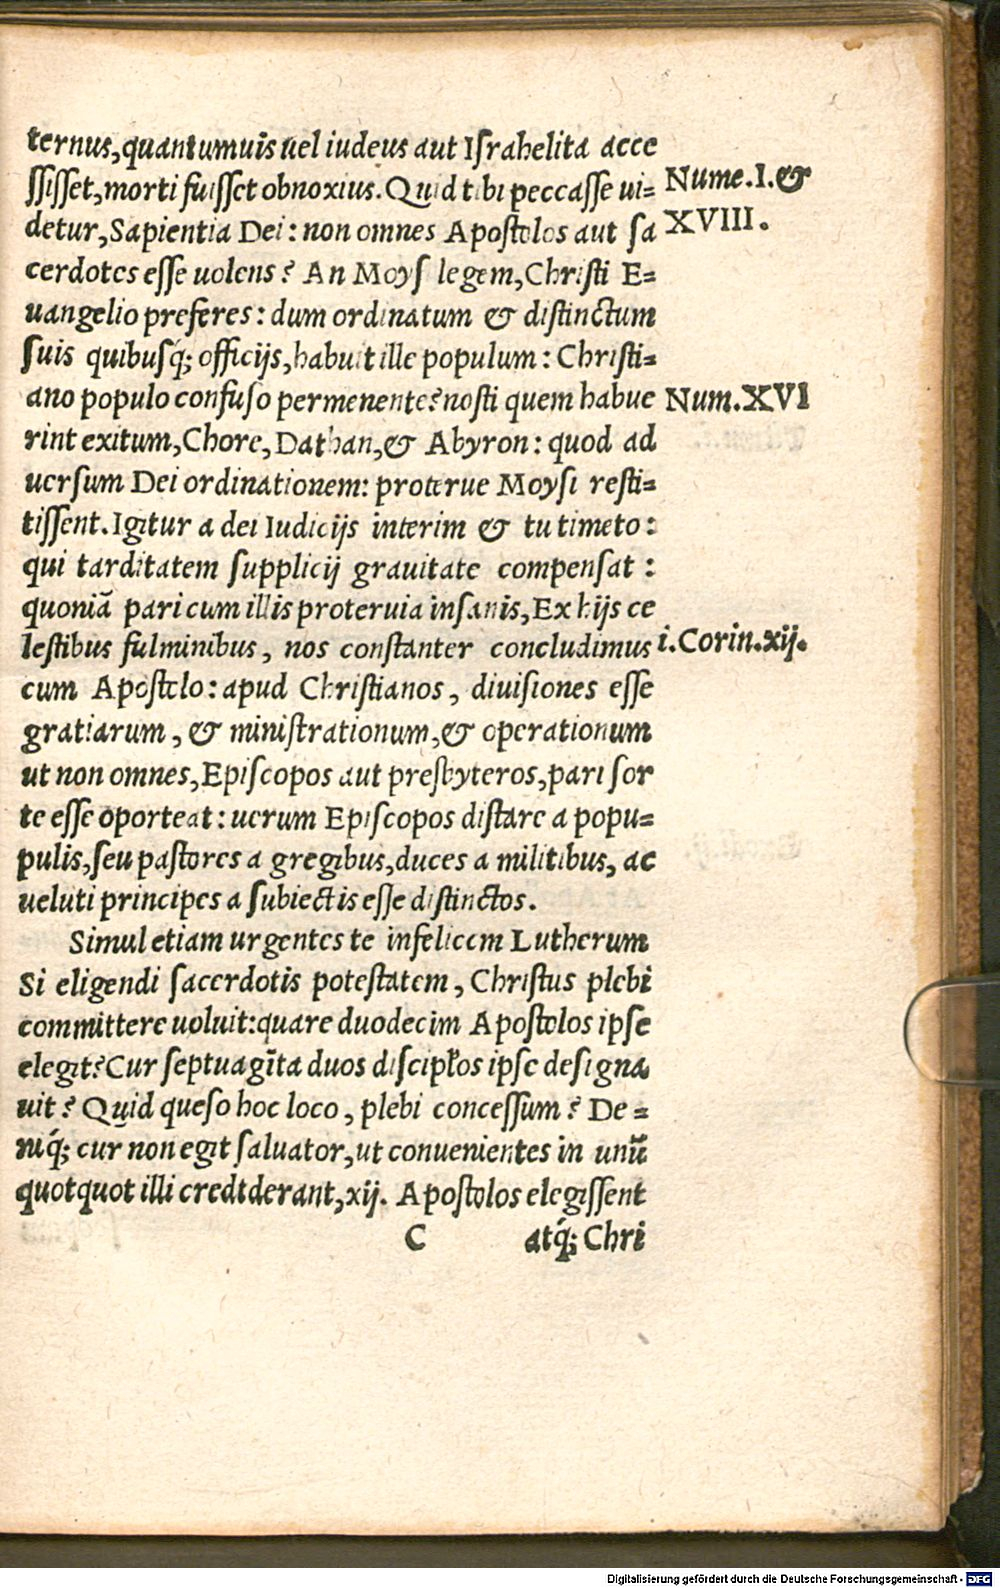 ternus,quantumuis̃ uel iudeus aut Israhelita acce
ssisset,morti fuisset obnoxius.Quid tibi peccasse ui= Nume.I.&
detur,Sapientia Dei: non omnes Apostolos aut sa XVIII.
cerdotes esse uolens? An Moys legem,Christi E=
uangelio preferes: dum ordinatum & distinctum
suis quibusq́; officijs,habuit ille populum: Christi=
ano populo confuso permenente?nosti quem habue Num.XVI
rint exitum,Chore,Dathan,& Abyron: quod ad
uersum Dei ordinationem: proterue Moysi resti=
tissent.Igitur a dei Iudicijs interim & tu timeto:
qui tarditatem supplicij grauitate compensat:
quoniã pari cum illis proteruia insanis,Ex hijs ce
lestibus fulminibus, nos constanter concludimus i.Corin.xij.
cum Apostolo: apud Christianos, diuisiones esse
gratiarum, & ministrationum,& operationum
ut non omnes,Episcopos aut presbyteros,pari sor
te esse oporteat: uerum Episcopos distare a popu=
pulis,seu pastores a gregibus,duces a militibus, ac
ueluti principes a subiectis esse distinctos.
Simul etiam urgentes te infelicem Lutherum
Si eligendi sacerdotis potestatem, Christus plebi
committere uoluit:quare duodecim Apostolos ipse
elegit?Cur septuagĩta duos discipłos ipse designa
uit? Quid queso hoc loco, plebi concessum? De=
niq́; cur non egit saluator,ut convenientes in unũ
quotquot illi credtderant,xij. Apostolos elegissent
C atq́; Chri
Digitalisierung gefördert durch die Deutsche Forschungsgemeinschaft - DFG